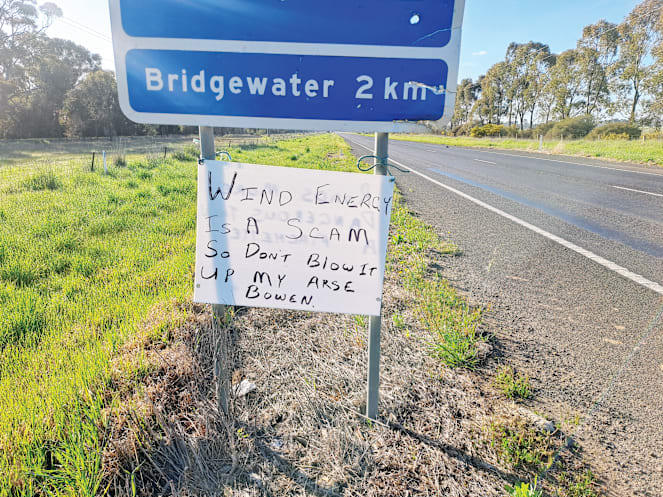 Bridgewater 2 km
WIND ENERGY
IS A SCAM
SO DON'T BLOW IT
UP MY ARSE
BOWEN.